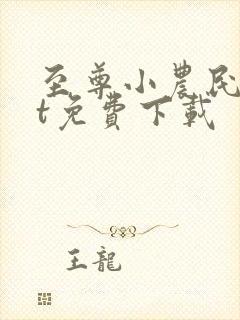 至尊小農民
t免費下載
王龍